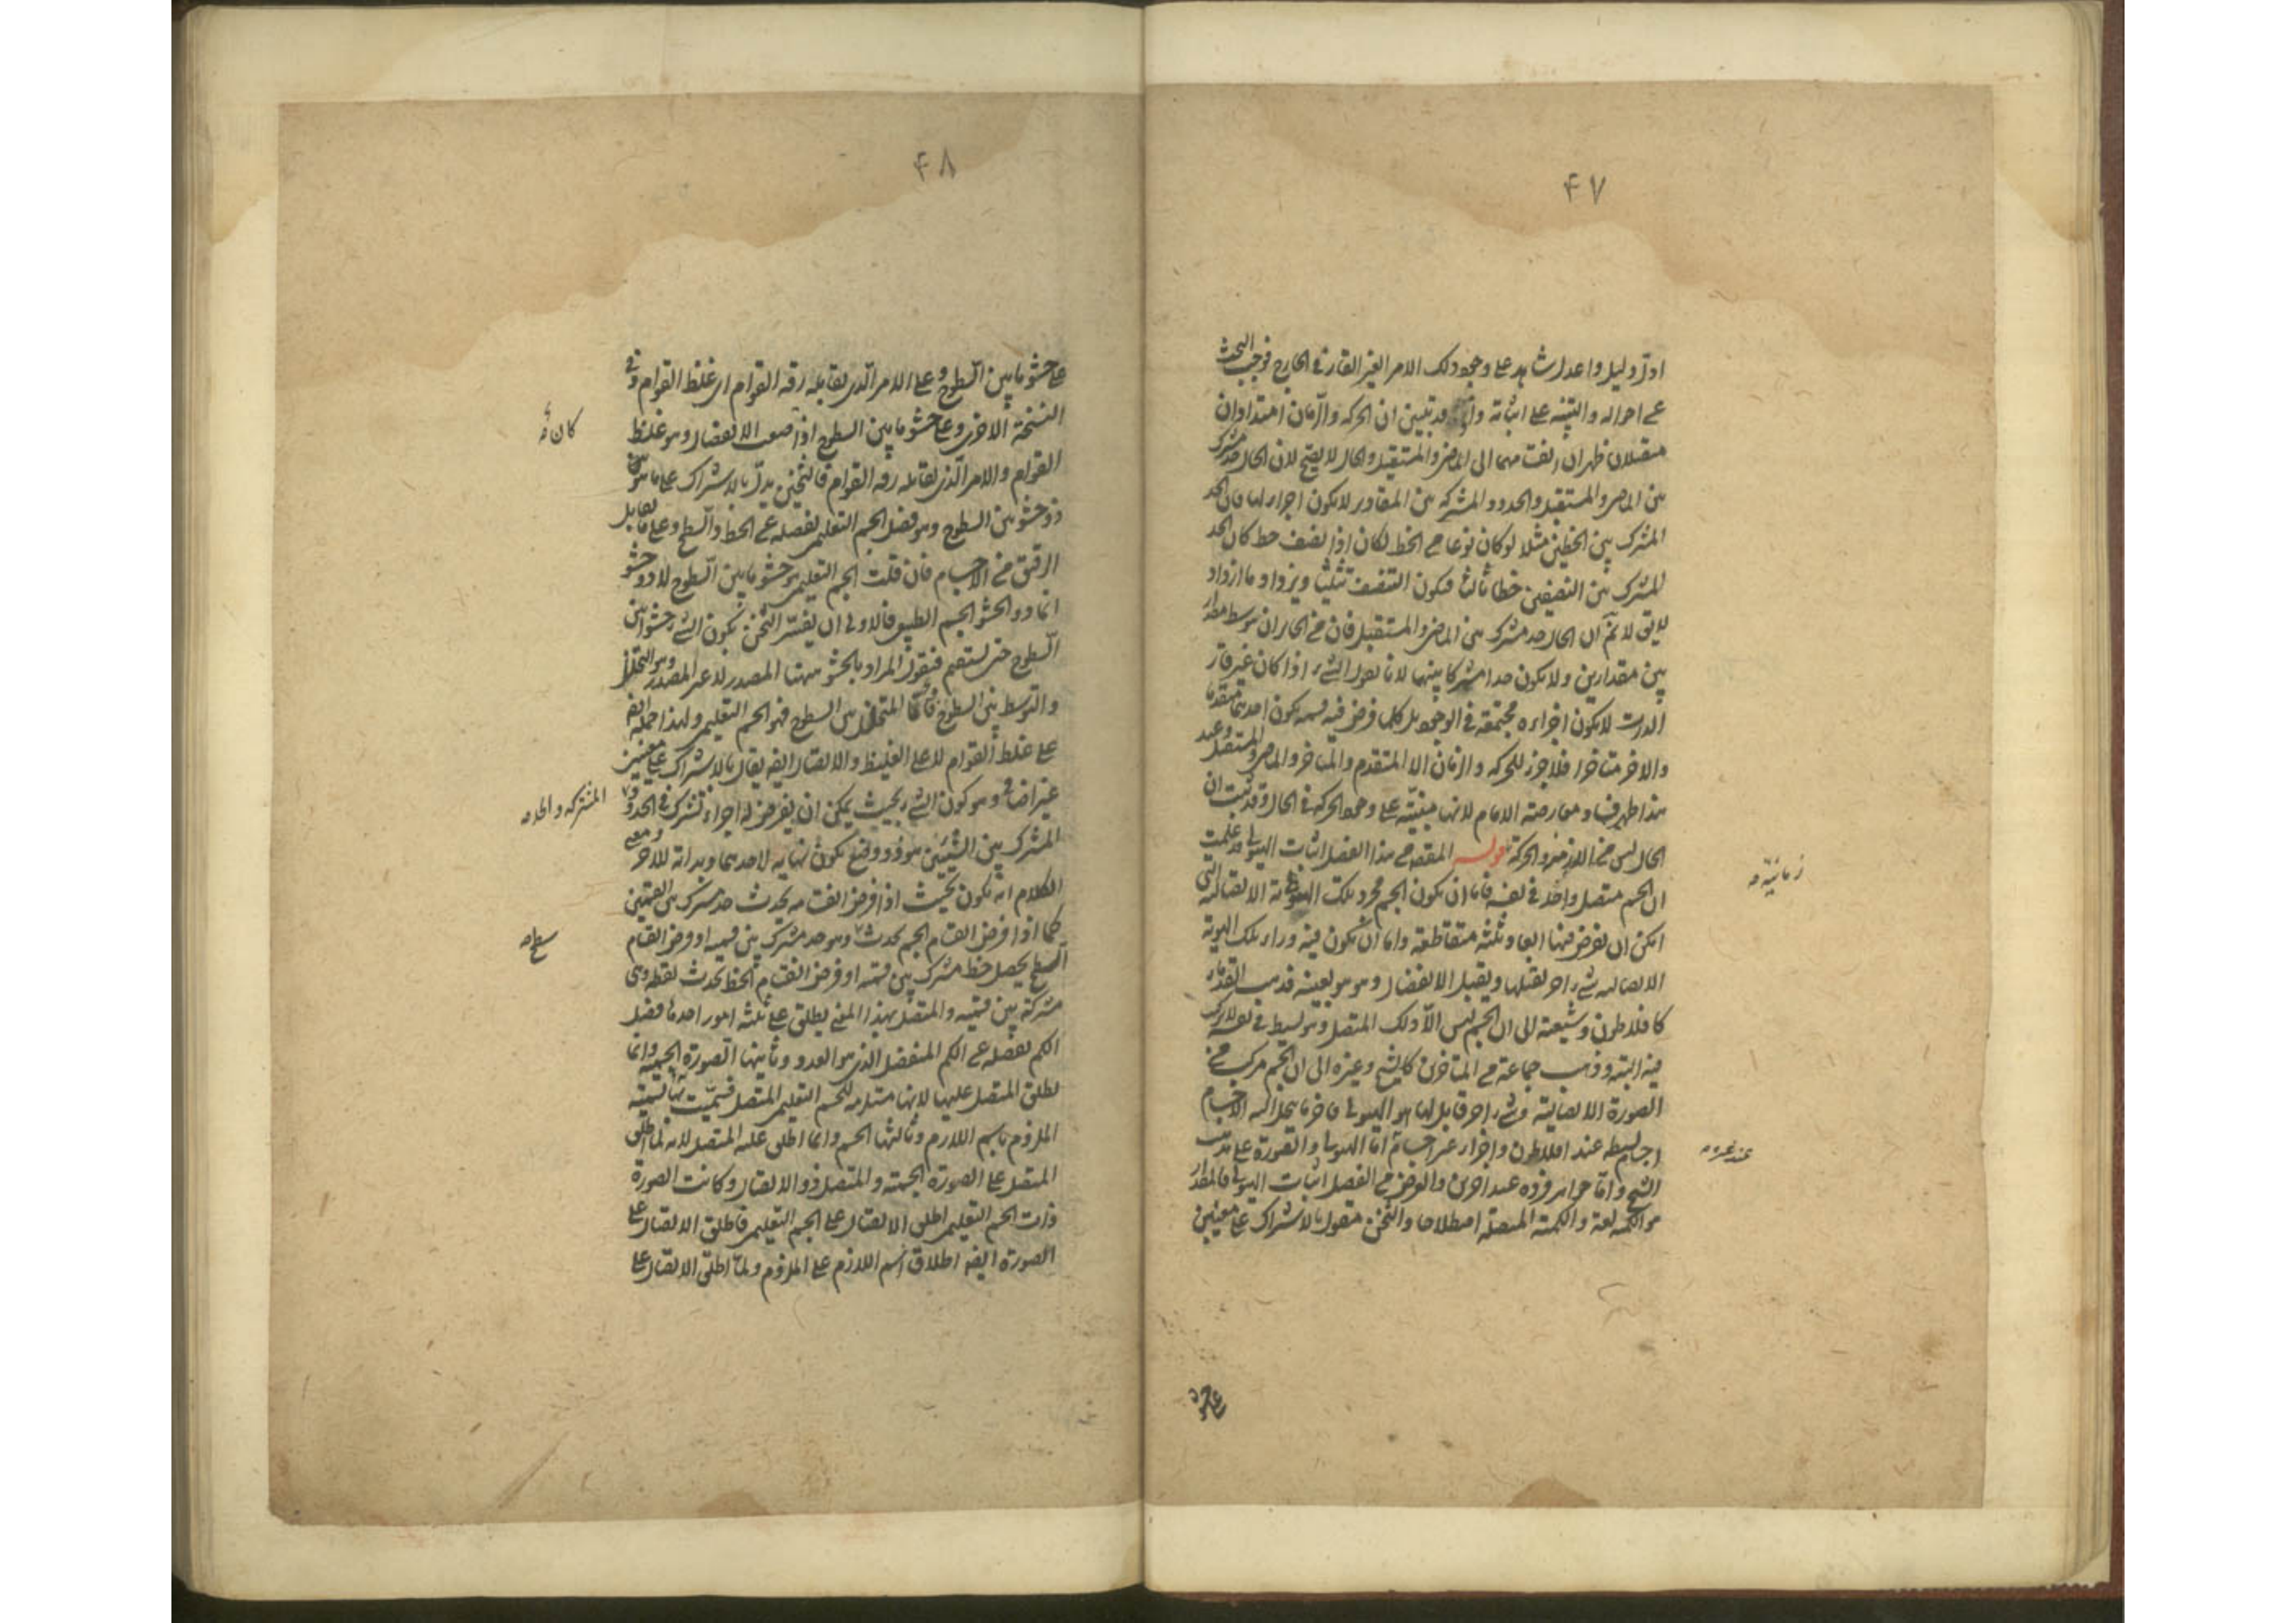 ۴۷
اول دليل واعدل شاهد على وجود ذلك الامر الغير القار في الخارج فوجب البحث
عن احواله والتنبيه على اثباته قد تبين ان الحركة والزمان امتدادان
متصلان ظهر ان انقسامهما الى الماضى والمستقبل والحال لا يصح لان الحال حد مشترك
بين الماضى والمستقبل والحدود المشتركة بين المقادير لا يكون اجزاء لها فان الحد
المشترك بين الخطين مثلا لو كان نوعا من الخط لكان اذا نصف خط كان الحد
المشترك بين النصفين خطا ثالثا فيكون التنصيف تثليثا ويزداد ما ازداد
لا يق لا نم ان الحال حد مشترك بين الماضى والمستقبل فان من الجائز ان يتوسط مقدار
بين مقدارين ولا يكون حدا مشتركا بينهما لانا نقول الشىء اذا كان غير قار
الذات لا يكون اجزاءه مجتمعة في الوجود بل كلما فرض فيه قسمة يكون احدهما متقدما
والاخر متاخرا فلا جزء للحركة والزمان الا المتقدم والمتاخر والماضى والمستقبل وعند
هذا ظهر فساد معارضة الامام لانها مبنية على وجود الحركة في الحال وقد ثبت ان
الحال ليس من الازمنة والحركة قوله المقصد من هذا الفصل اثبات الهيولى قد علمت
ان الجسم متصل واحد في نفسه فاما ان يكون الجسم مجرد تلك الهوية الاتصالية التى
امكن ان يفرض فيها ابعاد ثلثة متقاطعة واما ان يكون فيه وراء تلك الهوية
الاتصالية شىء اخر يقبلها ويقبل الانفصال وهو هو بعينه فذهب القدماء
كافلاطون وشيعته الى ان الجسم ليس الا ذلك المتصل وهو بسيط في نفسه لا تركب
فيه البتة وذهب جماعة من المتاخرين كالشيخ وغيره الى ان الجسم مركب من
الصورة الاتصالية وشىء اخر قابل لها هو الهيولى فاخر ما ينحل اليه الاجسام
اجسام بسيطة عند افلاطون واجزاء غير اجسام اما الهيولى والصورة على مذهب
الشيخ واما جواهر فردة عند اخرين والغرض من الفصل اثبات الهيولى فالمقدار
هو الكمية لغة والكمية المتصلة اصطلاحا والثخن مقول بالاشتراك على معنيين
زمانية
عند غيره
على حشو
۴۸
على حشو ما بين السطوح وعلى الامر الذى يقابله رقة القوام اى غلظ القوام وفى
النسخة الاخرى وعلى حشو ما بين السطوح اذا صعب الانفصال وهو غلظ
القوام والامر الذى يقابله رقة القوام فالثخين يدل بالاشتراك على ما هو
ذو حشو بين السطوح وهو فصل الجسم التعليمى يفصله عن الخط والسطح وعلى ما يقابل
الرقيق من الاجسام فان قلت الجسم التعليمى حشو ما بين السطوح لا ذو حشو
انما ذو الحشو الجسم الطبيعى فالاولى ان يفسر الثخن بكون الشىء حشوا بين
السطوح حتى يستقيم فنقول المراد بالحشو ههنا المصدر لا غير المصدر وهو التخلل
والتوسط بين السطوح فاما المتخلل بين السطوح فهو الجسم التعليمى ولهذا حمله ايضا
على غلظ القوام لا على الغليظ والاتصال ايضا يقال بالاشتراك على معنيين
غير اضافى وهو كون الشىء بحيث يمكن ان يفرض له اجزاء تشترك في الحدود
المشترك بين الشيئين هو ذو وضع يكون نهاية لاحدهما وبداية للاخر ومعنى
الكلام انه يكون بحيث اذا فرض انقسامه يحدث حد مشترك بين القسمين
كما اذا فرض انقسام الجسم يحدث وهو حد مشترك بين قسميه او فرض انقسام
السطح يحصل خط مشترك بين قسميه او فرض انقسام الخط يحدث نقطة وهى
مشتركة بين قسميه والمتصل بهذا المعنى يطلق على ثلثة امور احدها فصل
الكم يفصله عن الكم المنفصل الذى هو العدد وثانيها الصورة الجسمية وانما
يطلق المتصل عليها لانها مستلزمة للجسم التعليمى المتصل فسميت بها تسمية
الملزوم باسم اللازم وثالثها الجسم وانما اطلق عليه المتصل لانه لما اطلق
المتصل على الصورة الجسمية والمتصل ذو الاتصال وكانت الصورة
ذات الجسم التعليمى اطلق الاتصال على الجسم التعليمى فاطلق الاتصال على
الصورة ايضا اطلاق اسم اللازم على الملزوم ولما اطلق الاتصال على
كان
المشتركة والحد
سطح